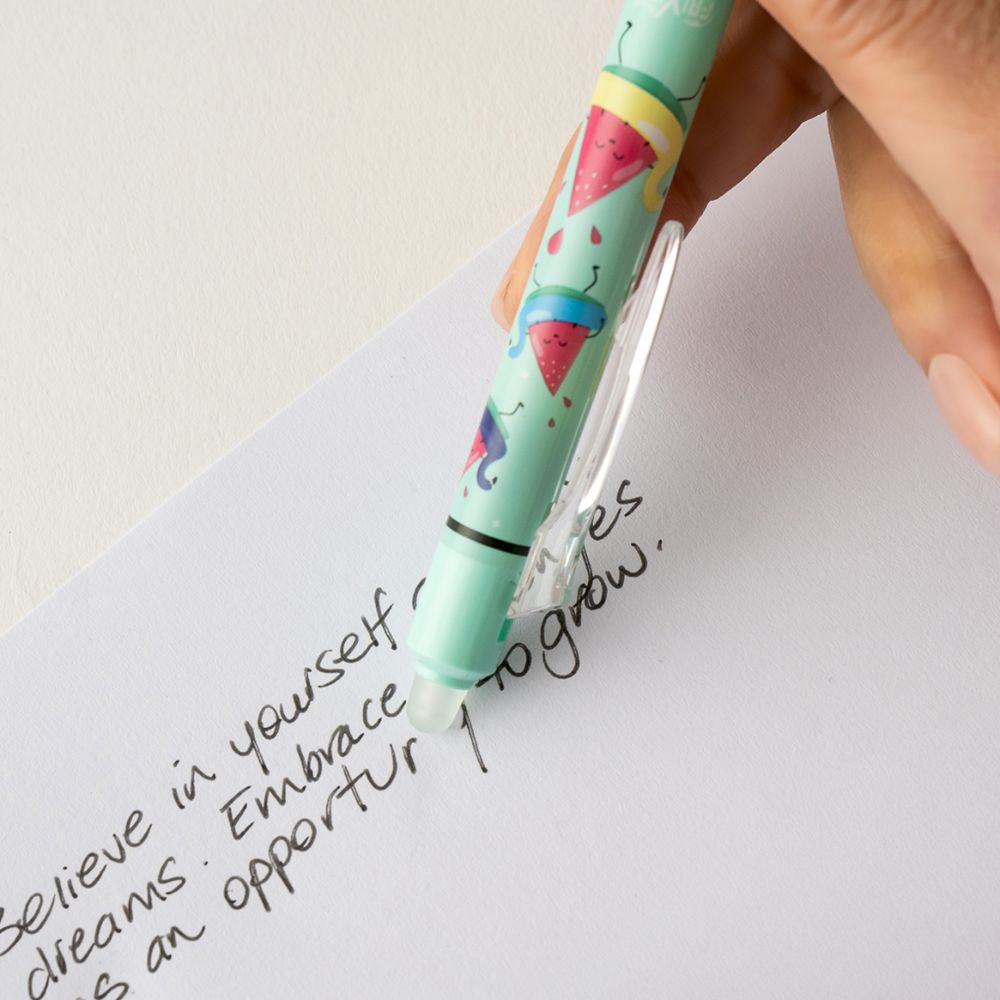 Believe in yourself
dreams. Embrace
as an opportu to grow.